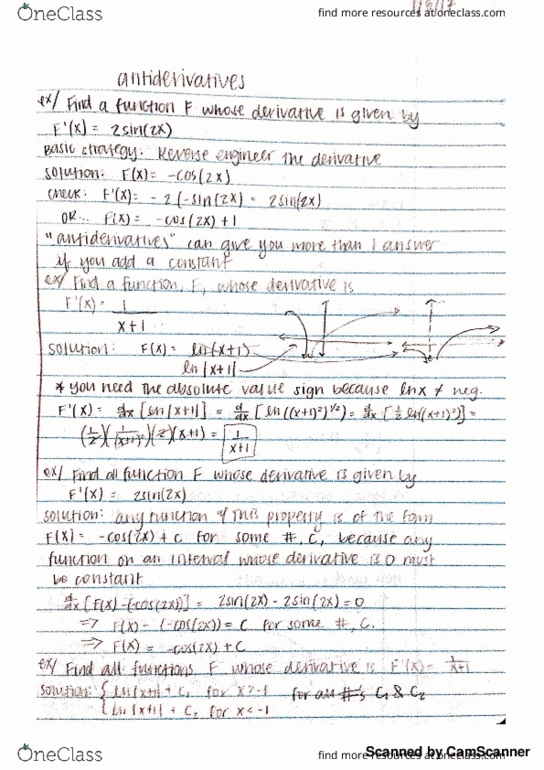 OneClass
find more resources at oneclass.com
antiderivatives
ex/ Find a function F whose derivative is given by
F'(x) = 2sin(2x)
Basic strategy: Reverse engineer the derivative
solution: F(x) = -cos(2x)
check: F'(x) = -2(-sin(2x) = 2sin(2x)
OR... F(x) = -cos(2x)+1
"antiderivatives" can give you more than 1 answer
if you add a constant
ex/ Find a function, F, whose derivative is
F'(x) = 1
x+1
solution: F(x) = ln(x+1)
ln|x+1|
* you need the absolute value sign because lnx ≠ neg.
F'(x) = d/dx [ln|x+1|] = d/dx [ln((x+1)²)^½] = d/dx [½ ln(x+1)²)] =
(1/2)(1/(x+1)²)(2)(x+1) = 1/x+1
ex/ Find all function F whose derivative is given by
F'(x) = 2sin(2x)
solution: any function of this property is of the form
F(x) = -cos(2x) + c for some #, C, because any
function on an interval whose derivative is 0 must
be constant
d/dx [F(x) -(-cos(2x))] = 2sin(2x) - 2sin(2x) = 0
=> F(x) - (-cos(2x)) = C for some #, C.
=> F(x) = -cos(2x) + C
ex/ Find all functions F whose derivative is F'(x) = 1/x+1
solution: { ln|x+1| + C₁ for x>-1 for all #'s C₁ & C₂
{ ln|x+1| + C₂ for x<-1
Scanned by CamScanner
OneClass
find more resources at oneclass.com